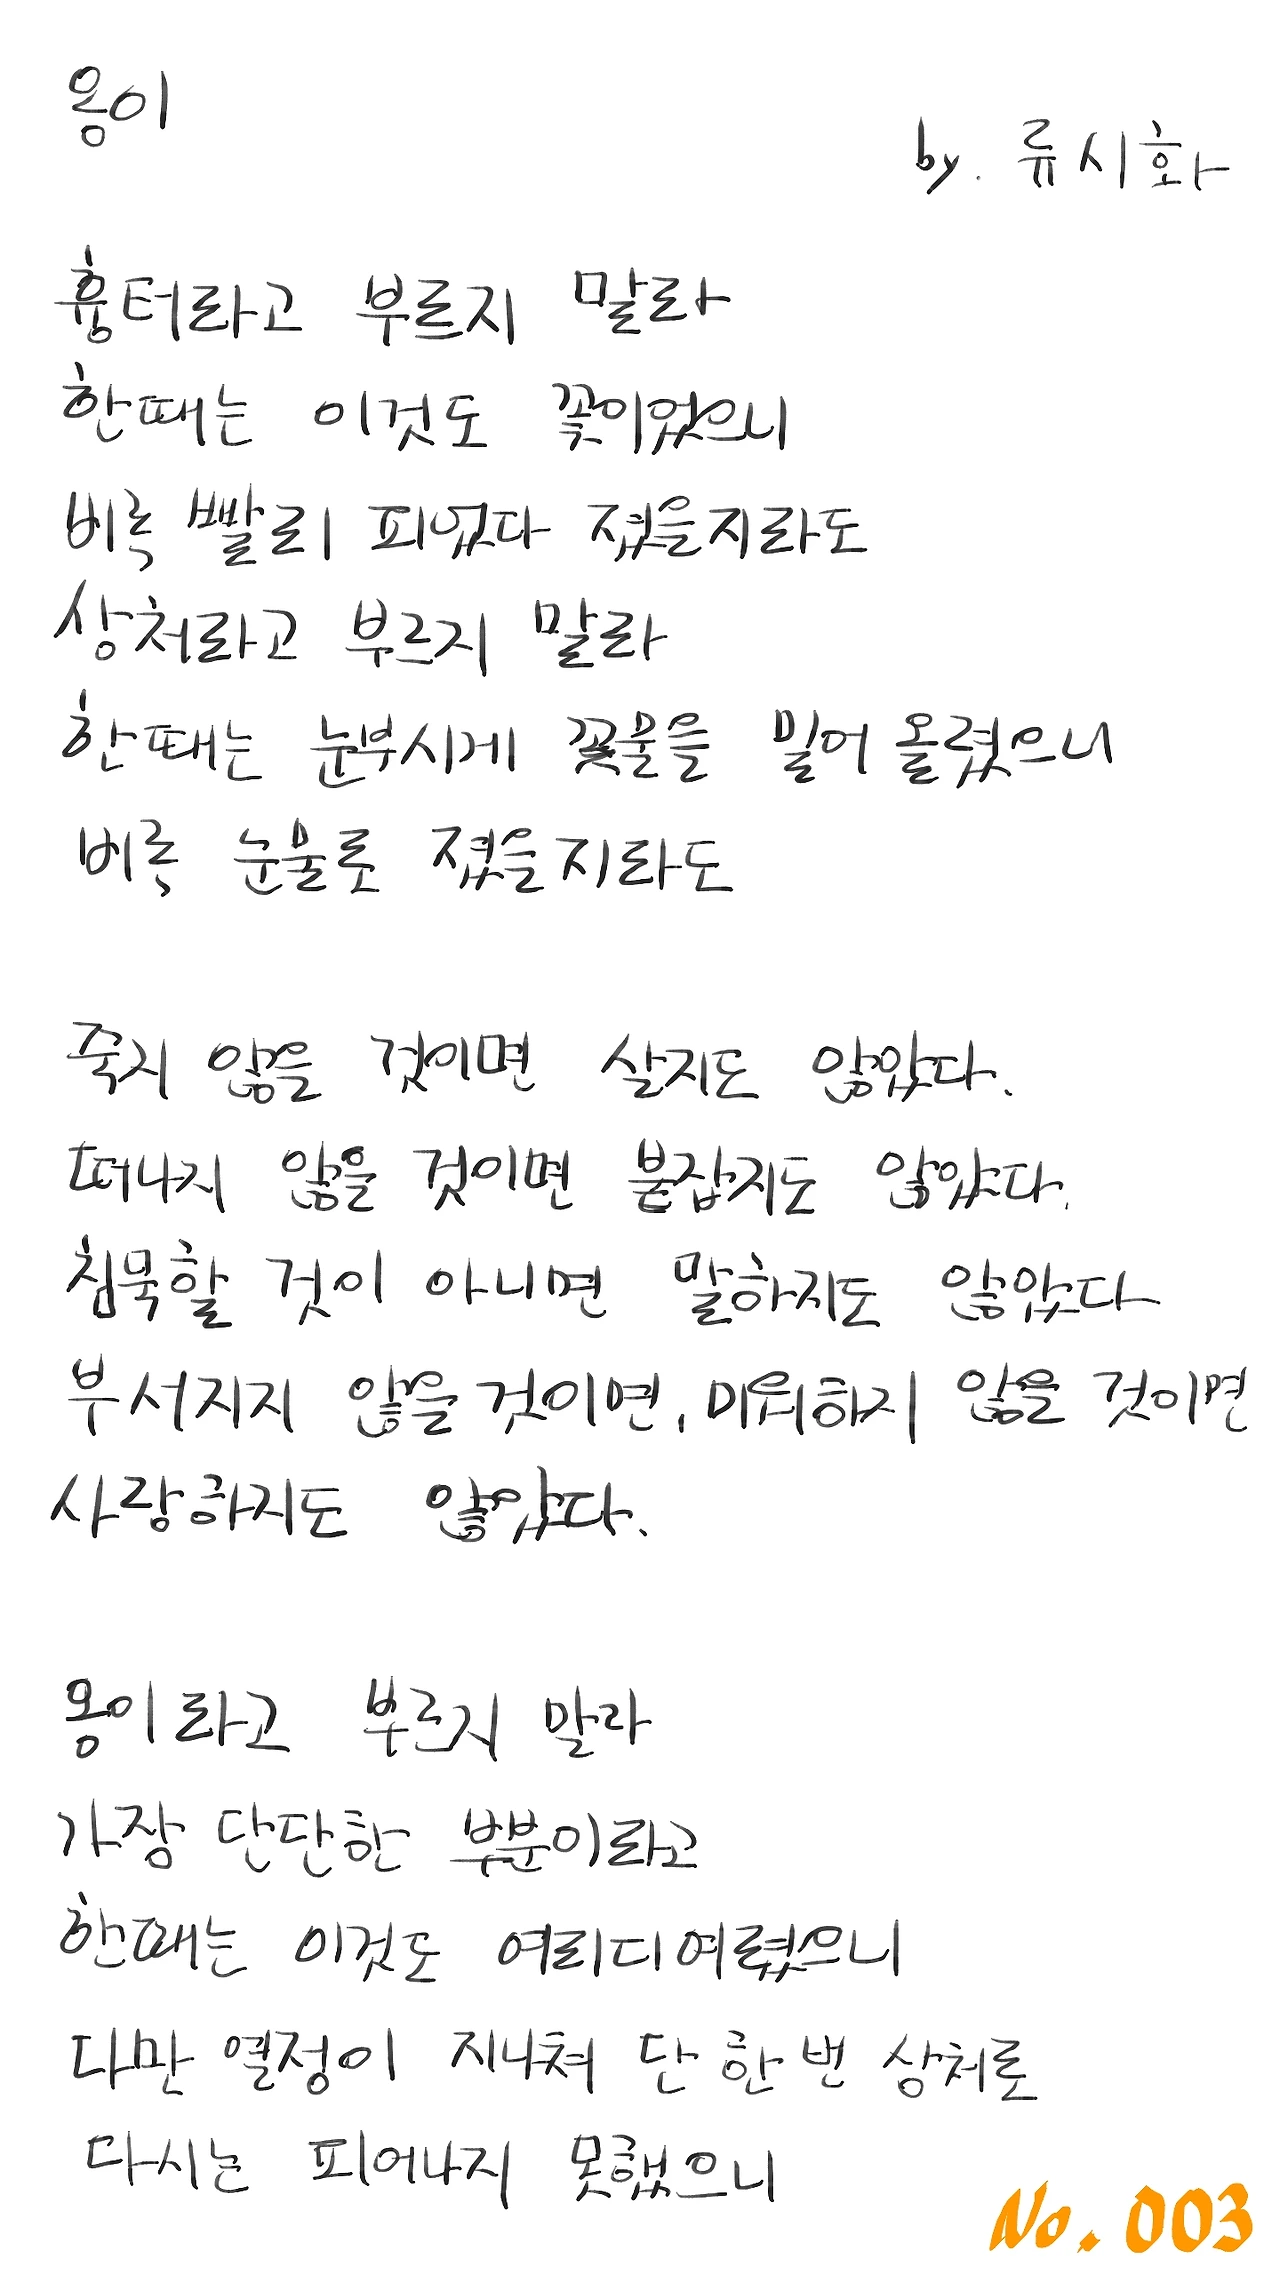 옹이
by. 류시화
흉터라고 부르지 말라
한때는 이것도 꽃이었으니
비록 빨리 피었다 졌을지라도
상처라고 부르지 말라
한때는 눈부시게 꽃물을 밀어 올렸으니
비록 눈물로 졌을지라도
죽지 않을 것이면 살지도 않았다.
떠나지 않을 것이면 붙잡지도 않았다.
침묵할 것이 아니면 말하지도 않았다
부서지지 않을 것이면, 미워하지 않을 것이면
사랑하지도 않았다.
옹이라고 부르지 말라
가장 단단한 부분이라고
한때는 이것도 여리디여렸으니
다만 열정이 지나쳐 단 한 번 상처로
다시는 피어나지 못했으니
No. 003